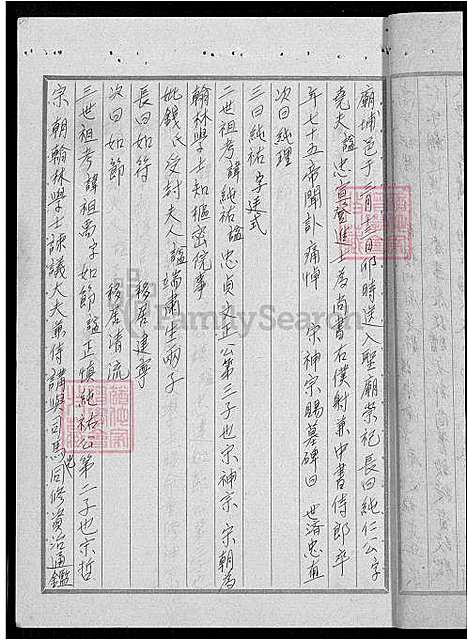 廟埔邑于三月十三日卯時送入聖廟崇祀長曰純仁公字
堯夫諡忠宣登進士為尚書右僕射兼中書侍郎卒
年七十五帝聞訃痛悼 宗神宗賜墓碑曰 世濟忠直
次曰純理
三曰純祐字逹式
二世祖考諱純祐諡忠貞文正公第三子也宗神宗 宗朝為
翰林學士知樞密院事
妣錢氏受封夫人諡端肅生兩子
長曰如符 移居建寧
次曰如節 移居清流
三世祖考諱祖禹字如節諡正慎純祐公第二子也宗哲
宗朝翰林學士諫議大夫兼侍講與司馬光同修資治通鑑
FamilySearch